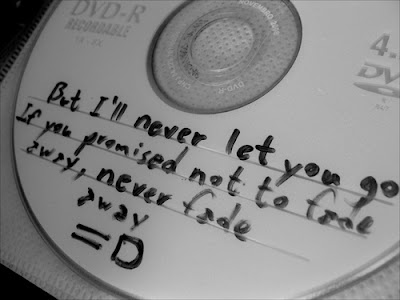 DVD-R
RECORDABLE
4.
DVD
But I'll never let you go
If you promised not to fade
away, never fade
away
=D